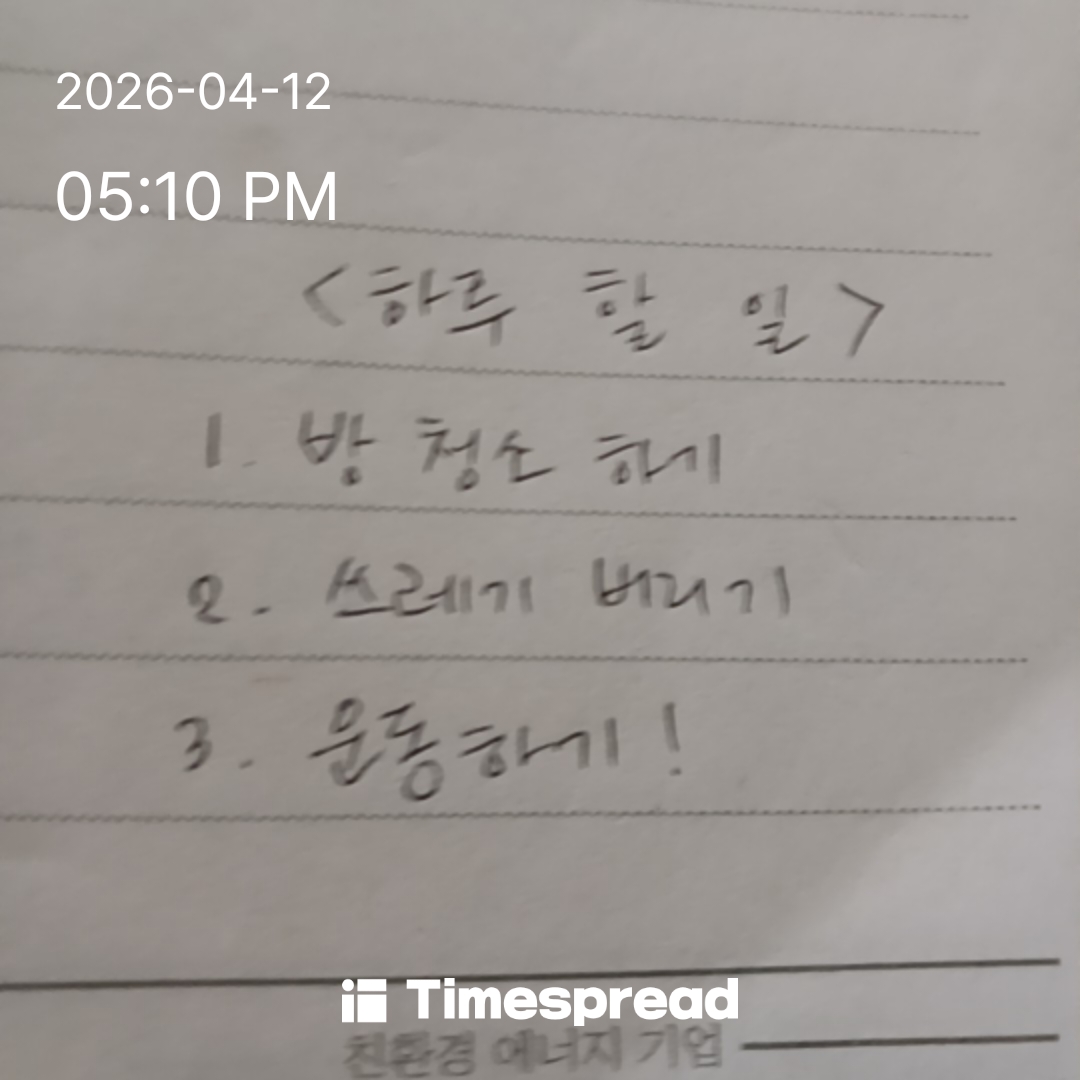 2026-04-12
05:10 PM
<하루 할 일>
1. 방 청소 하기
2. 쓰레기 버리기
3. 운동하기!
Timespread
친환경 에너지 기업